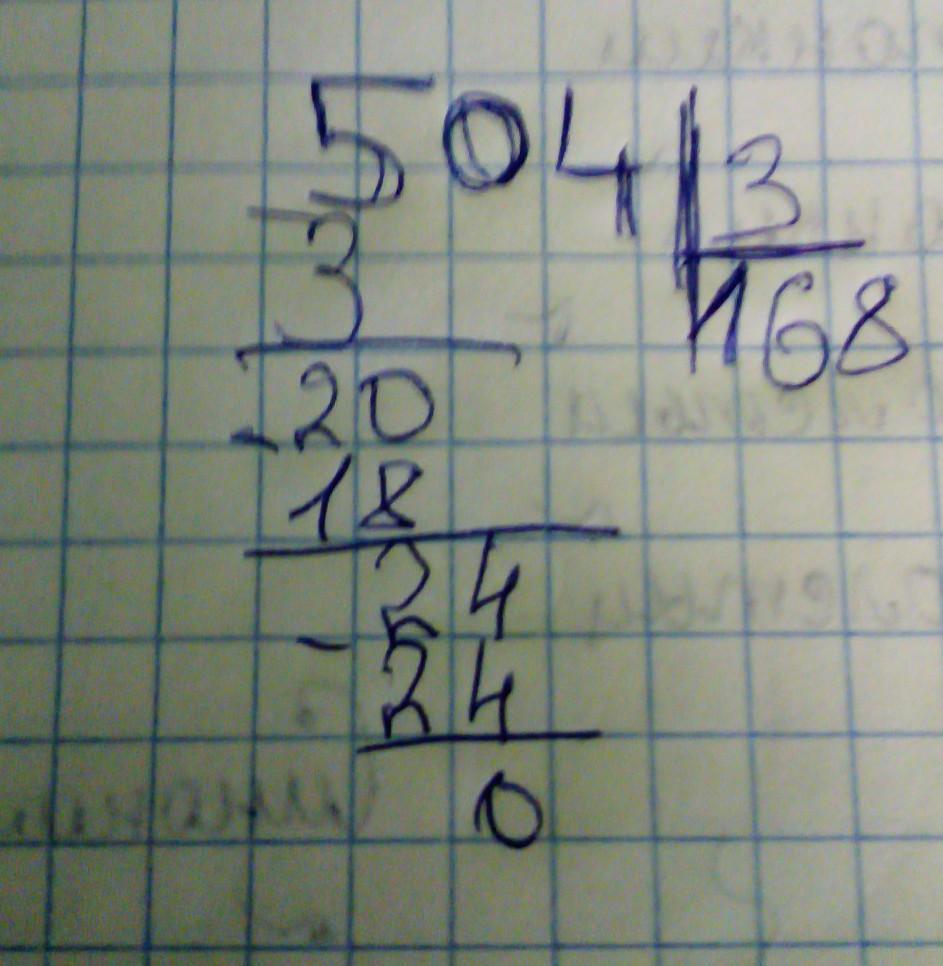 504 3
168
- 3
- 20
18
- 24
24
0